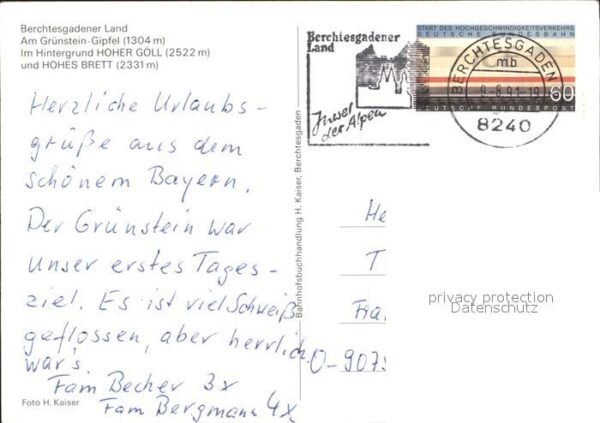 Berchtesgadener Land
Am Grünstein-Gipfel (1304 m)
Im Hintergrund HOHER GÖLL (2522 m)
und HOHES BRETT (2331 m)
Herzliche Urlaubs-
grüße aus dem
schönem Bayern.
Der Grünstein war
unser erstes Tages-
ziel. Es ist viel Schweiß
geflossen, aber herrlich
war's.
Fam Becher 3x
Fam Bergmann 4x
Foto H. Kaiser
Bahnhofsbuchhandlung H. Kaiser, Berchtesgaden
Berchtesgadener
Land
Insel
der Alpen
START DES HOCHGESCHWINDIGKEITSVERKEHRS
DEUTSCHE BUNDESBAHN
60
DEUTSCHE BUNDESPOST
BERCHTESGADEN
mb
8.91-19
8240
He
T
Fra
O-9075
privacy protection
Datenschutz